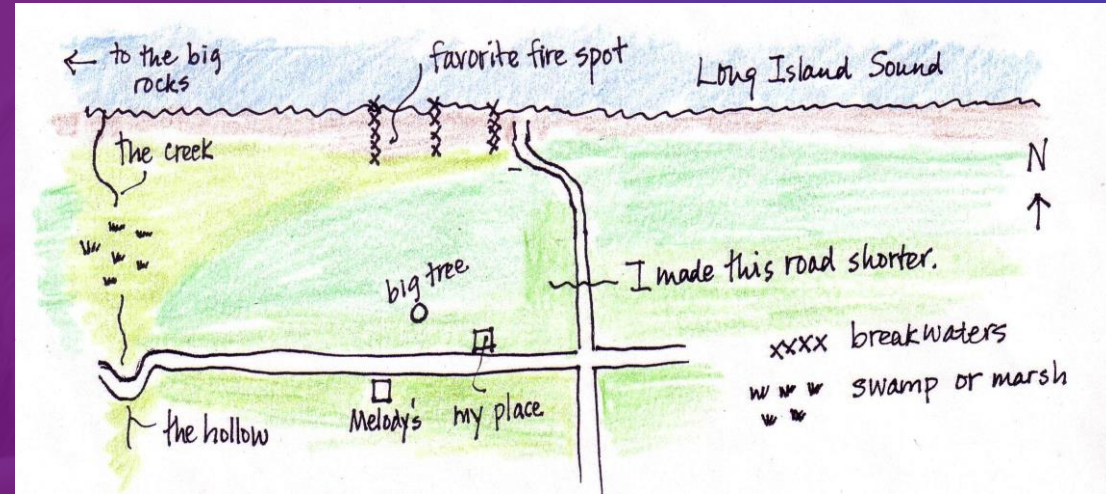 ← to the big
rocks
favorite fire spot
Long Island Sound
the creek
N
↑
big tree
I made this road shorter.
xxxx breakwaters
swamp or marsh
Melody's
my place
the hollow